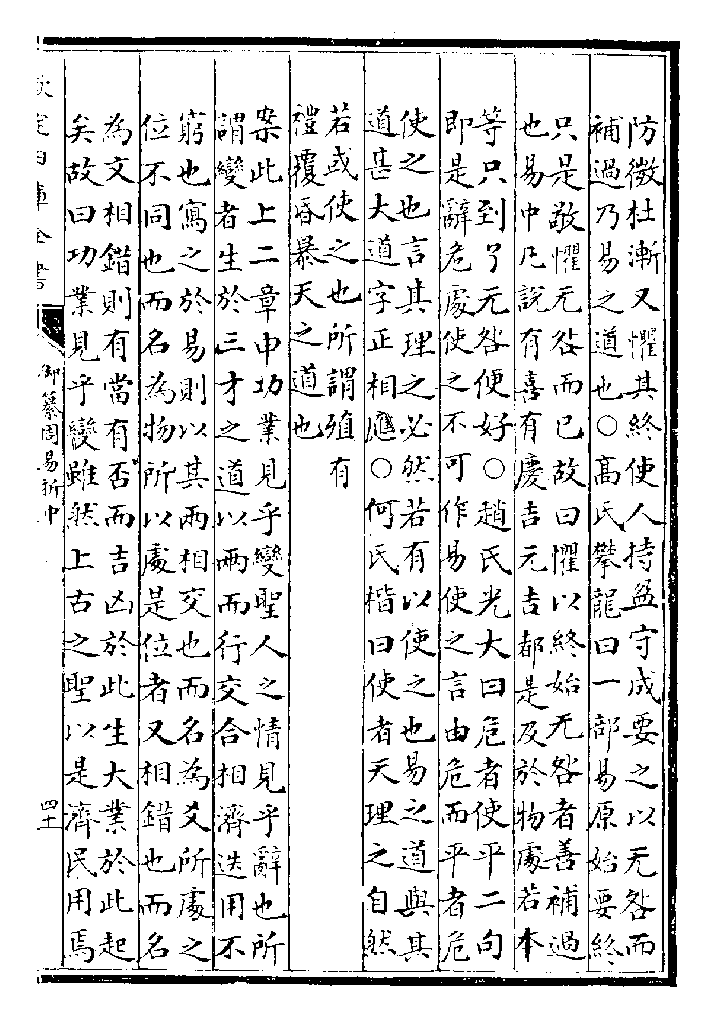 防微杜漸又懼其終使人持盈守成要之以无咎而
補過乃易之道也○高氏攀龍曰一部易原始要終
只是敬懼无咎而已故曰懼以終始无咎者善補過
也易中凡說有喜有慶吉元吉都是及於物處若本
等只到了无咎便好○趙氏光大曰危者使平二句
即是辭危處使之不可作易使之言由危而平者危
使之也言其理之必然若有以使之也易之道與其
道甚大道字正相應○何氏楷曰使者天理之自然
若或使之也所謂殖有
禮覆昏暴天之道也
案此上二章申功業見乎變聖人之情見乎辭也所
謂變者生於三才之道以兩而行交合相濟迭用不
窮也寫之於易則以其兩相交也而名為爻所處之
位不同也而名為物所以處是位者又相錯也而名
為文相錯則有當有否而吉凶於此生大業於此起
矣故曰功業見乎變雖然上古之聖以是濟民用焉
欽定四庫全書
御纂周易折中
四十一